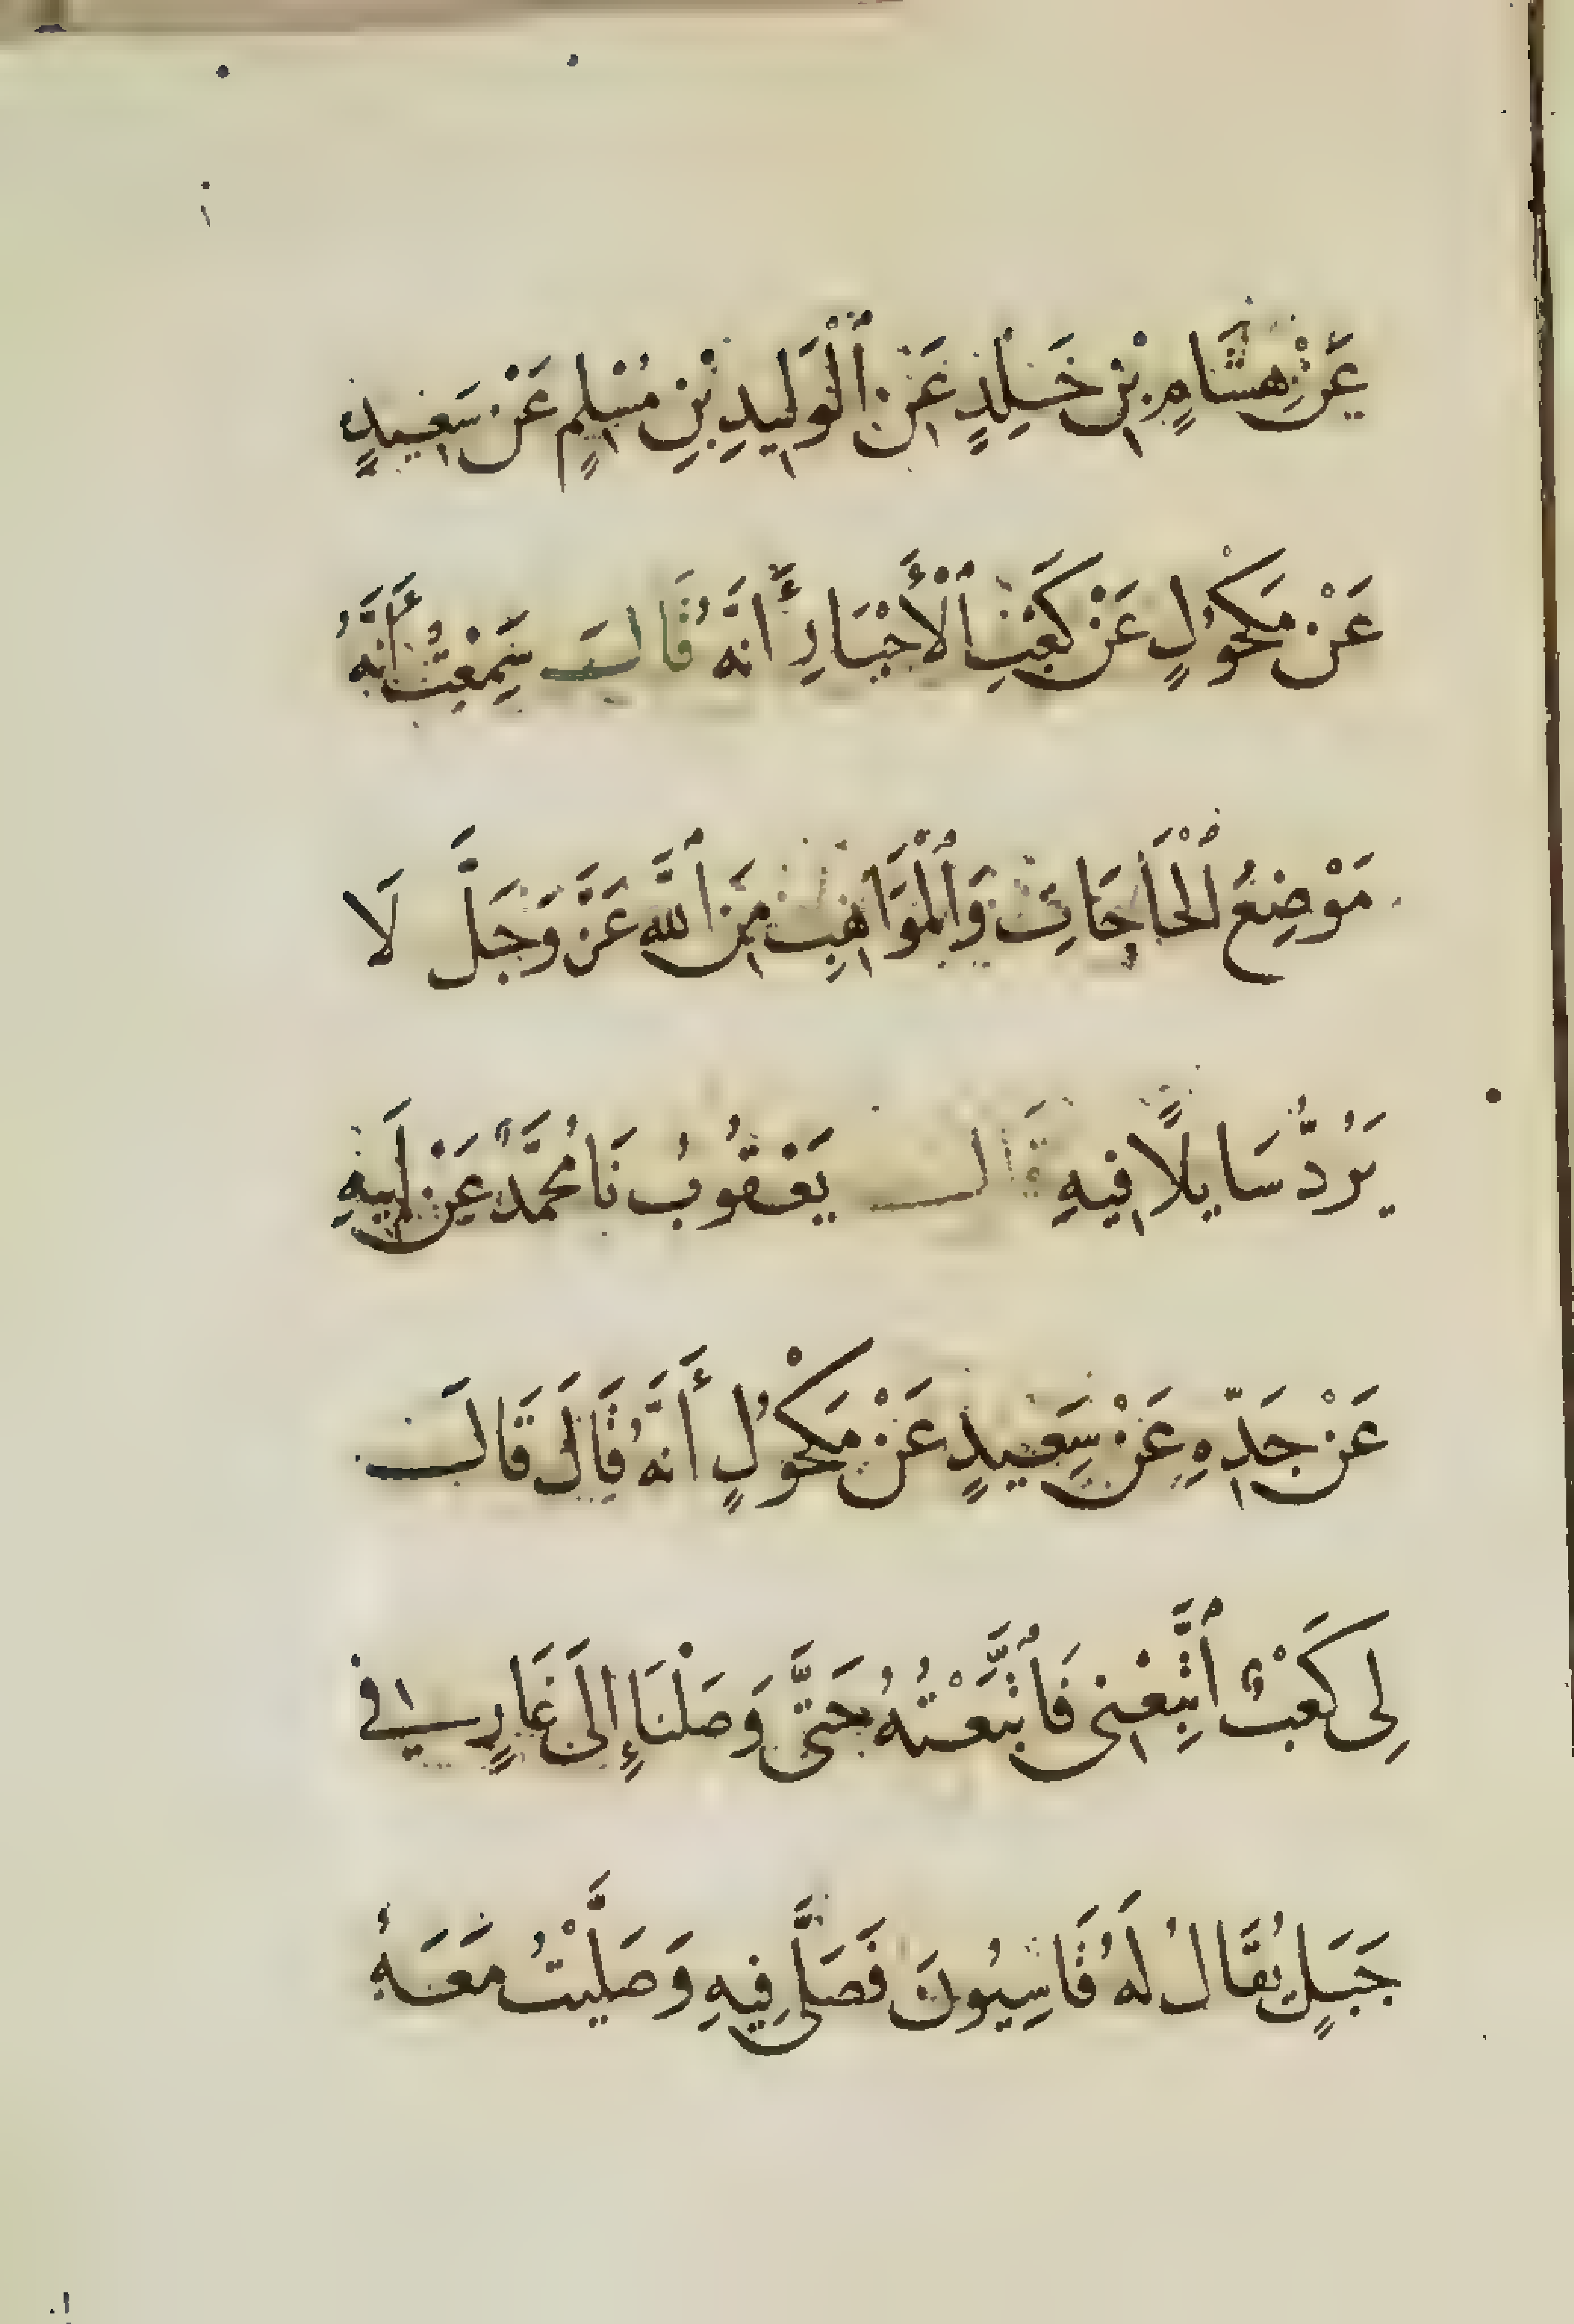 عَنْ هِشَامِ بْنِ خَلِدٍ عَنِ ٱلْوَلِيدِ بْنِ مُسْلِمٍ عَنْ سَعِيدٍ
عَنْ مَكْحُولٍ عَنْ كَعْبِ ٱلْأَحْبَارِ أَنَّهُ قَالَ سَمِعْتُ أَنَّهُ
مَوْضِعُ ٱلْحَاجَاتِ وَٱلْمَوَاهِبِ مِنَ ٱللَّهِ عَزَّ وَجَلَّ لَا
يَرُدُّ سَايِلًا فِيهِ قَالَ يَعْقُوبُ نَا مُحَمَّدٌ عَنْ أَبِيهِ
عَنْ جَدِّهِ عَنْ سَعِيدٍ عَنْ مَكْحُولٍ أَنَّهُ قَالَ قَالَ
لِى كَعْبٌ ٱتَّبِعْنِى فَٱتَّبَعْتُهُ حَتَّى وَصَلْنَا إِلَى غَارٍ فِى
جَبَلٍ يُقَالُ لَهُ قَاسِيُونَ فَصَلَّى فِيهِ وَصَلَّيْتُ مَعَهُ